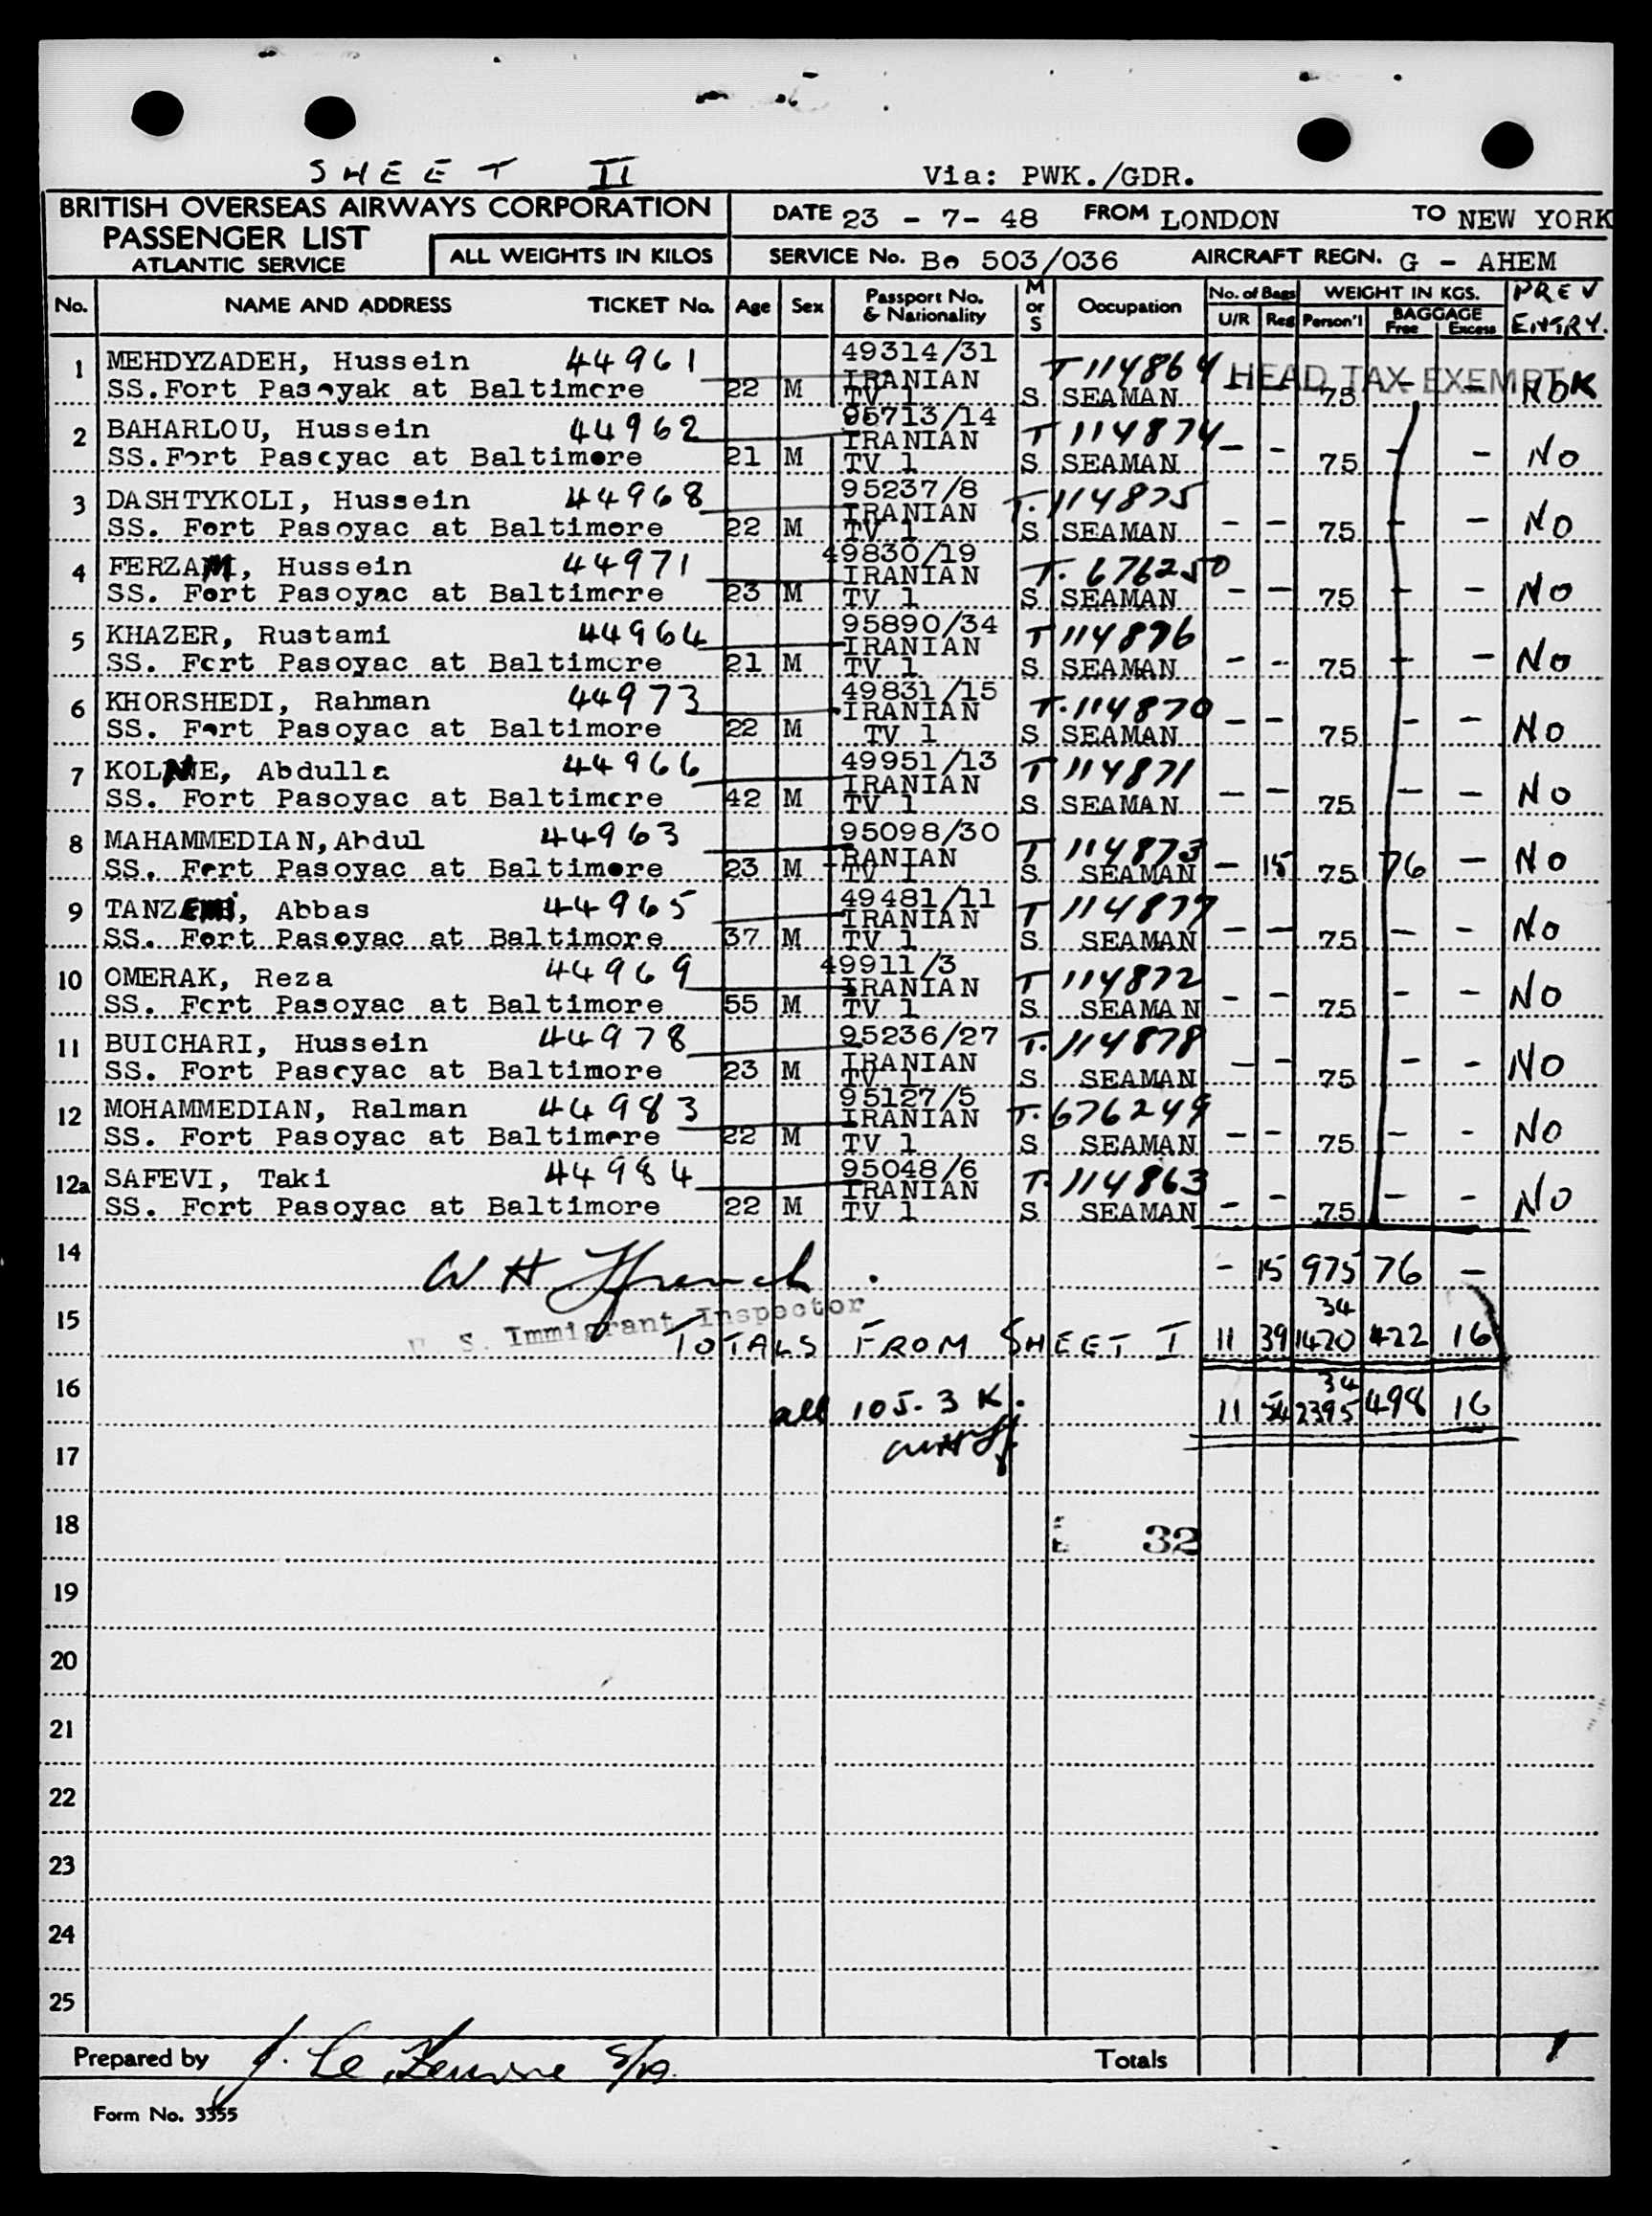 SHEET II
Via: PWK./GDR.
BRITISH OVERSEAS AIRWAYS CORPORATION
PASSENGER LIST
ATLANTIC SERVICE
ALL WEIGHTS IN KILOS
DATE 23 - 7- 48 FROM LONDON TO NEW YORK
SERVICE No. Be 503/036 AIRCRAFT REGN. G - AHEM
No. NAME AND ADDRESS TICKET No. Age Sex Passport No. & Nationality M or S Occupation No. of Bags U/R Reg WEIGHT IN KGS. Person'l BAGGAGE Free Excess PREV ENTRY.
HEAD TAX EXEMPT
1 MEHDYZADEH, Hussein 44961 49314/31 IRANIAN T 114864
SS.Fort Pasoyak at Baltimore 22 M TV 1 S SEAMAN - - 75 - - NO K
2 BAHARLOU, Hussein 44962 95713/14 IRANIAN T 114874
SS.Fort Pascyac at Baltimore 21 M TV 1 S SEAMAN - - 75 - - NO
3 DASHTYKOLI, Hussein 44968 95237/8 IRANIAN T. 114875
SS. Fort Pasoyac at Baltimore 22 M TV 1 S SEAMAN - - 75 - - NO
4 FERZAM, Hussein 44971 49830/19 IRANIAN T. 676250
SS. Fort Pasoyac at Baltimore 23 M TV 1 S SEAMAN - - 75 - - NO
5 KHAZER, Rustami 44964 95890/34 IRANIAN T 114876
SS. Fort Pasoyac at Baltimore 21 M TV 1 S SEAMAN - - 75 - - NO
6 KHORSHEDI, Rahman 44973 49831/15 IRANIAN T. 114870
SS. Fort Pasoyac at Baltimore 22 M TV 1 S SEAMAN - - 75 - - NO
7 KOLNE, Abdulla 44966 49951/13 IRANIAN T 114871
SS. Fort Pasoyac at Baltimore 42 M TV 1 S SEAMAN - - 75 - - NO
8 MAHAMMEDIAN, Abdul 44963 95098/30 IRANIAN T 114873
SS. Fort Pasoyac at Baltimore 23 M TV 1 S SEAMAN - 15 75 76 - NO
9 Abbas 44965 49481/11 IRANIAN T 114877
SS. Fort Pasoyac at Baltimore 37 M TV 1 S SEAMAN - - 75 - - NO
10 OMERAK, Reza 44969 49911/3 IRANIAN T 114872
SS. Fort Pasoyac at Baltimore 55 M TV 1 S SEAMAN - - 75 - - NO
11 BUICHARI, Hussein 44978 95236/27 IRANIAN T. 114878
SS. Fort Pascyac at Baltimore 23 M TV 1 S SEAMAN - - 75 - - NO
12 MOHAMMEDIAN, Ralman 44983 95127/5 IRANIAN T. 676249
SS. Fort Pasoyac at Baltimore 22 M TV 1 S SEAMAN - - 75 - - NO
12a SAFEVI, Taki 44984 95048/6 IRANIAN T. 114863
SS. Fort Pasoyac at Baltimore 22 M TV 1 S SEAMAN - - 75 - - NO
14 W H Ffrench - 15 975 76 -
U. S. Immigrant Inspector
34
15 TOTALS FROM SHEET I 11 39 1420 422 16
34
16 all 105. 3 K. 11 54 2395 498 16
17
18 32
19
20
21
22
23
24
25
Prepared by J. Le Totals
Form No. 3355